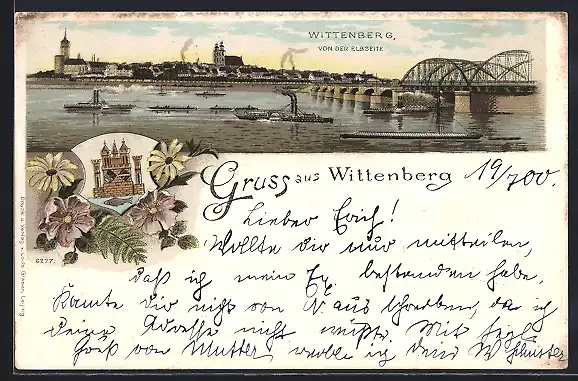 WITTENBERG,
VON DER ELBSEITE
Gruss aus Wittenberg 19/7 00.
Lieber Erich!
Wollte dir nur mitteilen,
daß ich mein Ex. bestanden habe,
Konnte dir nicht von N aus schreiben, da ich
deine Adresse nicht wußte. Mit
Gruß von Mutter, ich dein W Schuster
6277.
Druck u. Verlag v. Louis Glaser, Leipzig